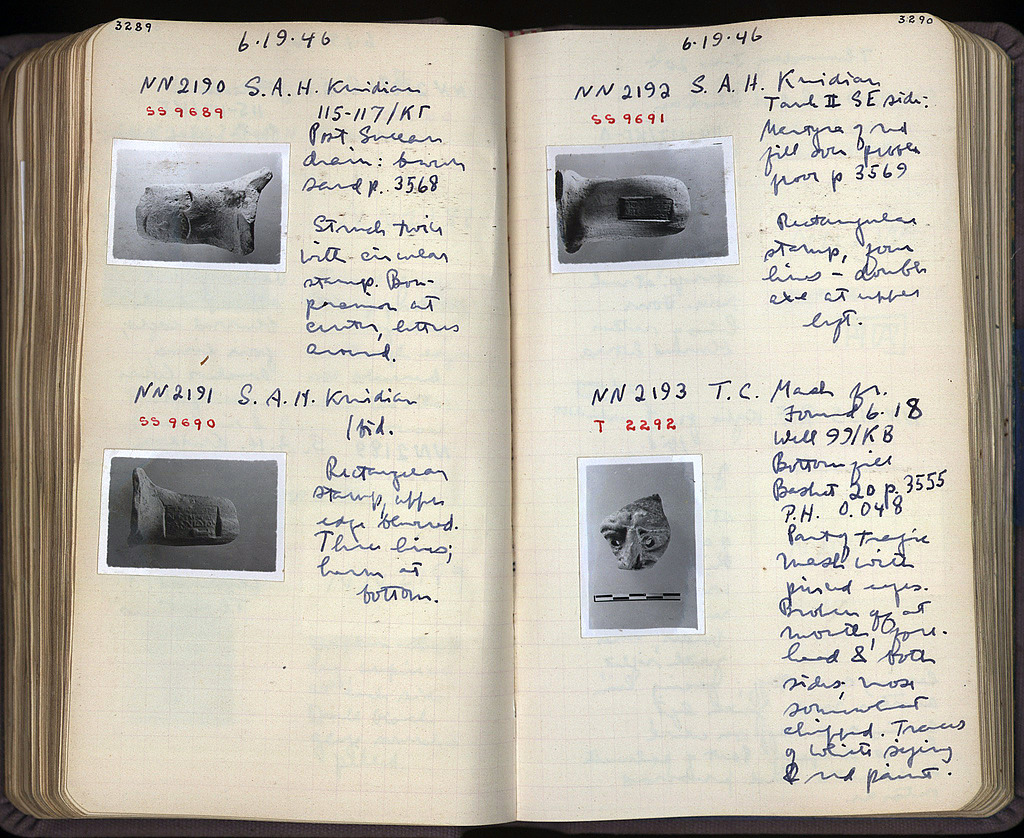 3289
6·19·46
NN2190 S. A. H. Knidian
SS 9689
115-117/KT
Post Sullan
drain: brown
sand p. 3568
Struck twice
with circular
stamp. Bou-
pranion at
center, letters
around.
NN2191 S. A. H. Knidian
SS 9690
Ibid.
Rectangular
stamp, upper
edge blurred.
Three lines;
herm at
bottom.
3290
6·19·46
NN 2192 S. A. H. Knidian
SS 9691
Tank II SE side:
of red
fill over
p 3569
Rectangular
stamp, four
lines – double
axe at upper
left.
NN 2193 T. C. Mask fr.
T 2292
Found 6·18
Well 99/KB
Bottom fill
Basket 20 p. 3555
P.H. 0.048
Part of tragic
mask with
pierced eyes.
Broken off at
mouth, fore-
head & both
sides, nose
somewhat
chipped. Traces
of white sizing
& red paint.